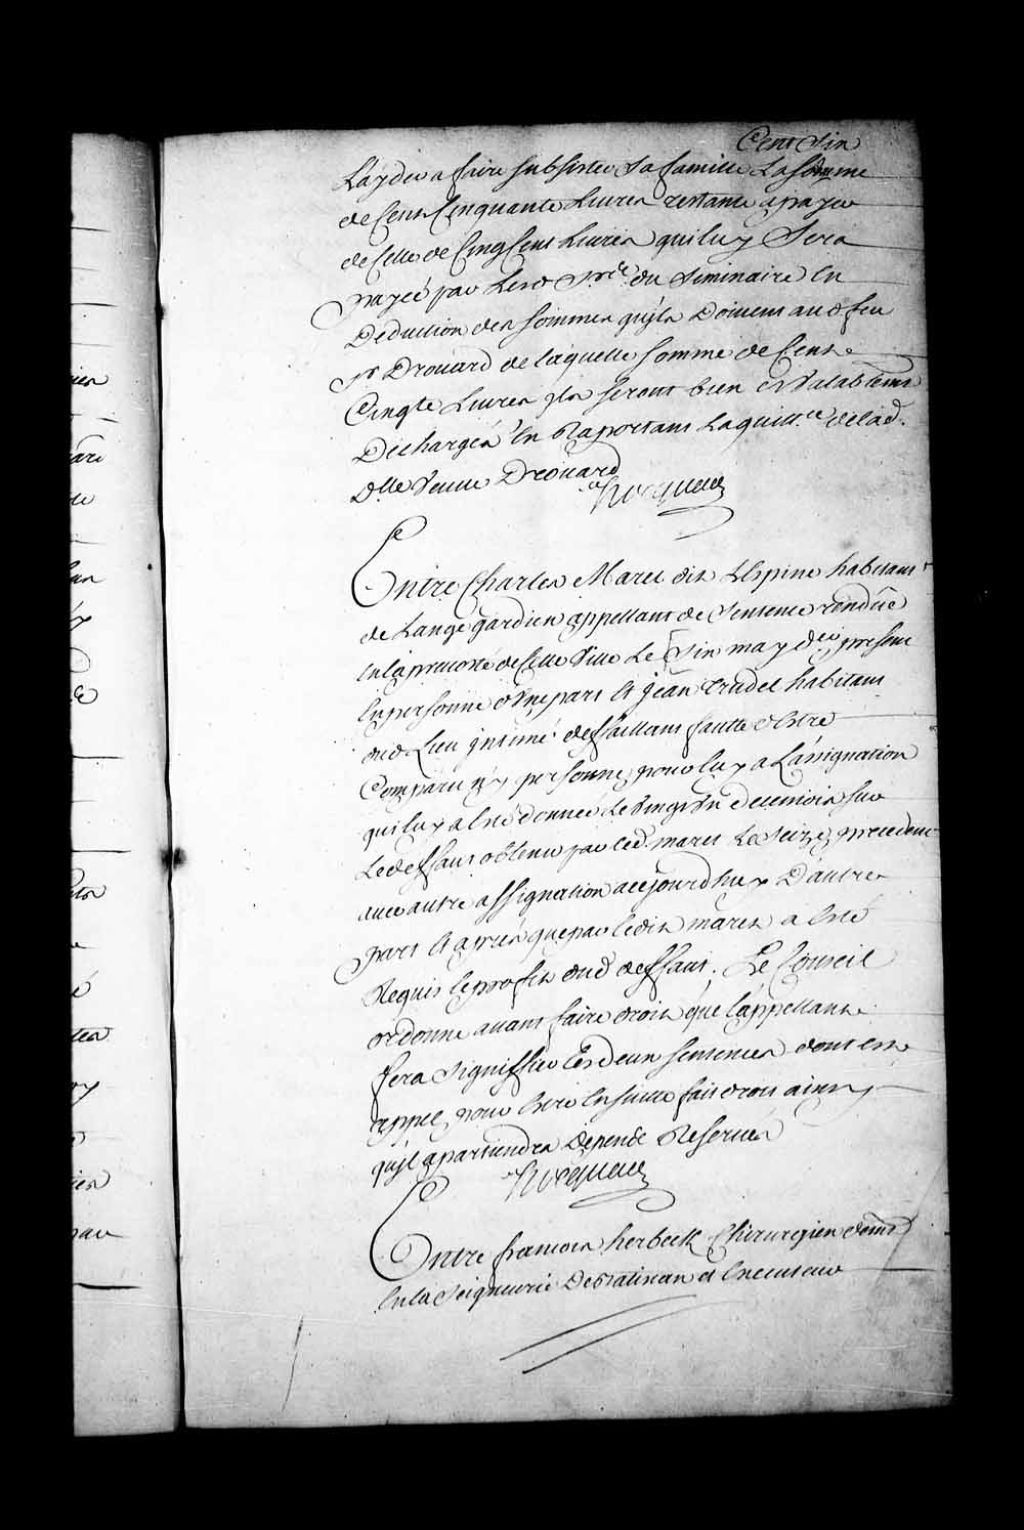 Cent Six
Layder a faire subsister sa famille La somme
de Cent Cinquante Livres restante a payer
de Celle de Cinq Cent Livres qui luy sera
payeé par Lesd. du seminaire En
Deduction des sommes quils Doivent aud feu
Sr Drouard de laquelle somme de Cent
Cinqte Livres ils seront bien et valablemt
Dechargés En Raportant La quitt.ce de lad.
Dlle Veuve Drouard
Hocquart
Entre Charles Maret dit Lespine habitant
de Lange gardien appellant de sentence rendüe
En la prevosté de Cette Ville Le six may der present
En personne d'Une part Et Jean trudel habitant
dud Lieu Intimé deffaillant faute d'Estre
Comparu ny personne pour luy a L'assignation
qui luy a Eté donnée Le Vingt Un de ce mois sur
Le deffaut obtenu par led. maret Le seize precedent
avec autre assignation a cejourd'huy D'autre
part Et aprés que par ledit maret a Eté
Requis le profit dud deffaut. Le Conseil
ordonne avant faire droit que l'appellant
fera signiffier Les deux sentences dont est
appel, pour Estre Ensuite fait droit ainsy
qu'il apartiendra Depens Reservés
Hocquart
Entre francois herbeck Chirurgien demt
En la Seigneurie De Batiscan et